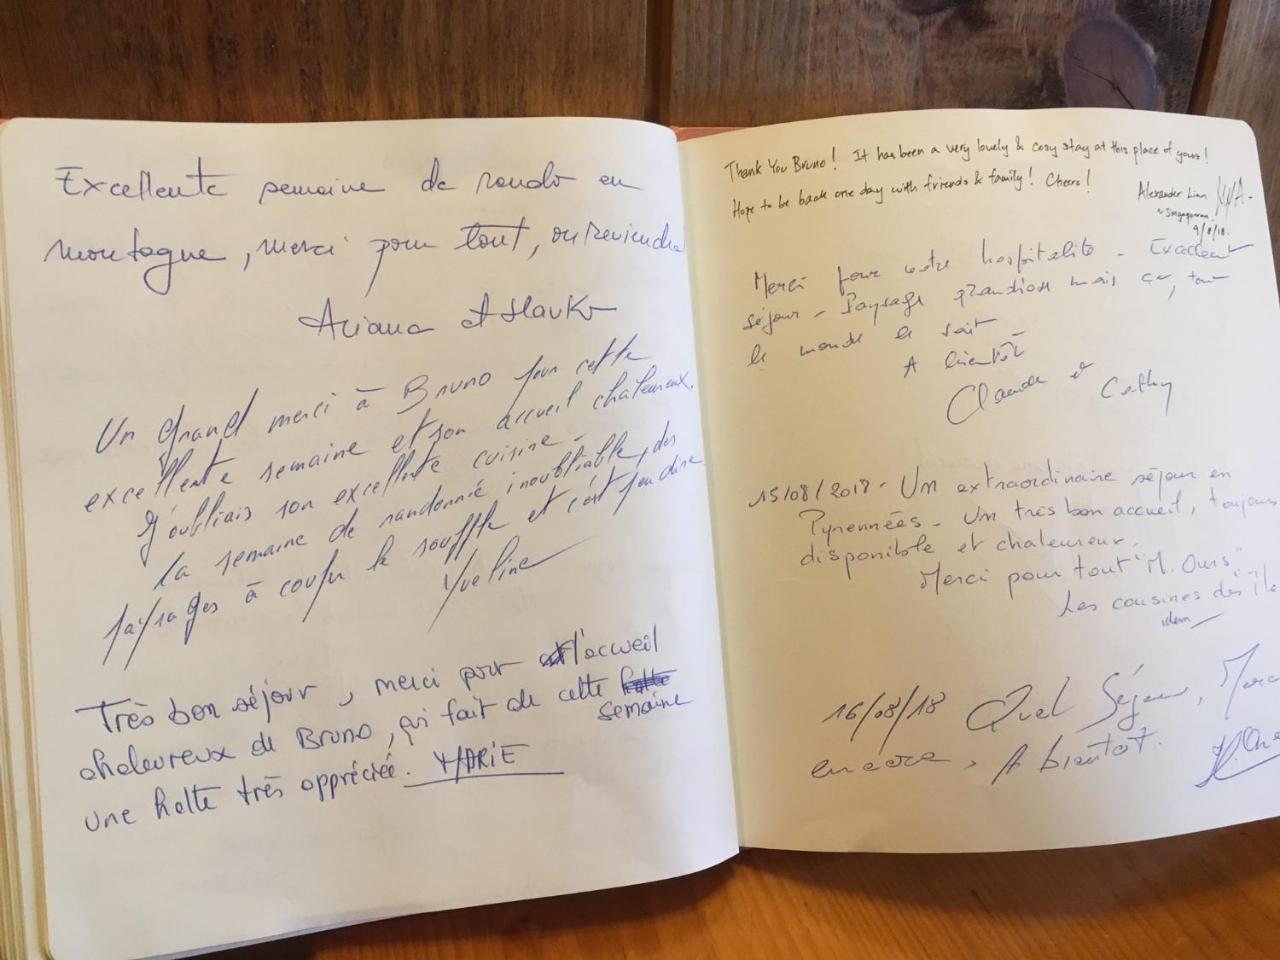 Excellente semaine de rando en
montagne, merci pour tout, on reviendra
Ariana et Slavko
Un grand merci à Bruno pour cette
excellente semaine et son accueil chaleureux.
J'oubliais son excellente cuisine -
La semaine de randonnée inoubliable, des
paysages à couper le souffle et c'est peu dire
Yveline
Très bon séjour, merci pour l'accueil
chaleureux de Bruno, qui fait de cette
semaine
une halte très appréciée. MARIE
Thank You Bruno! It has been a very lovely & cosy stay at this place of yours!
Hope to be back one day with friends & family! Cheers!
Alexander Lian
Singaporean
9/8/18.
Merci pour votre hospitalité - Excellent
séjour - Paysage grandiose mais ça, tout
le monde le sait -
A bientôt
Claude et Cathy
15/08/2018 - Un extraordinaire séjour en
Pyrennées - Un très bon accueil, toujours
disponible et chaleureux.
Merci pour tout "M. Ours"
Les cousines des îles
16/08/18 Quel Séjour,
encore, A bientôt.